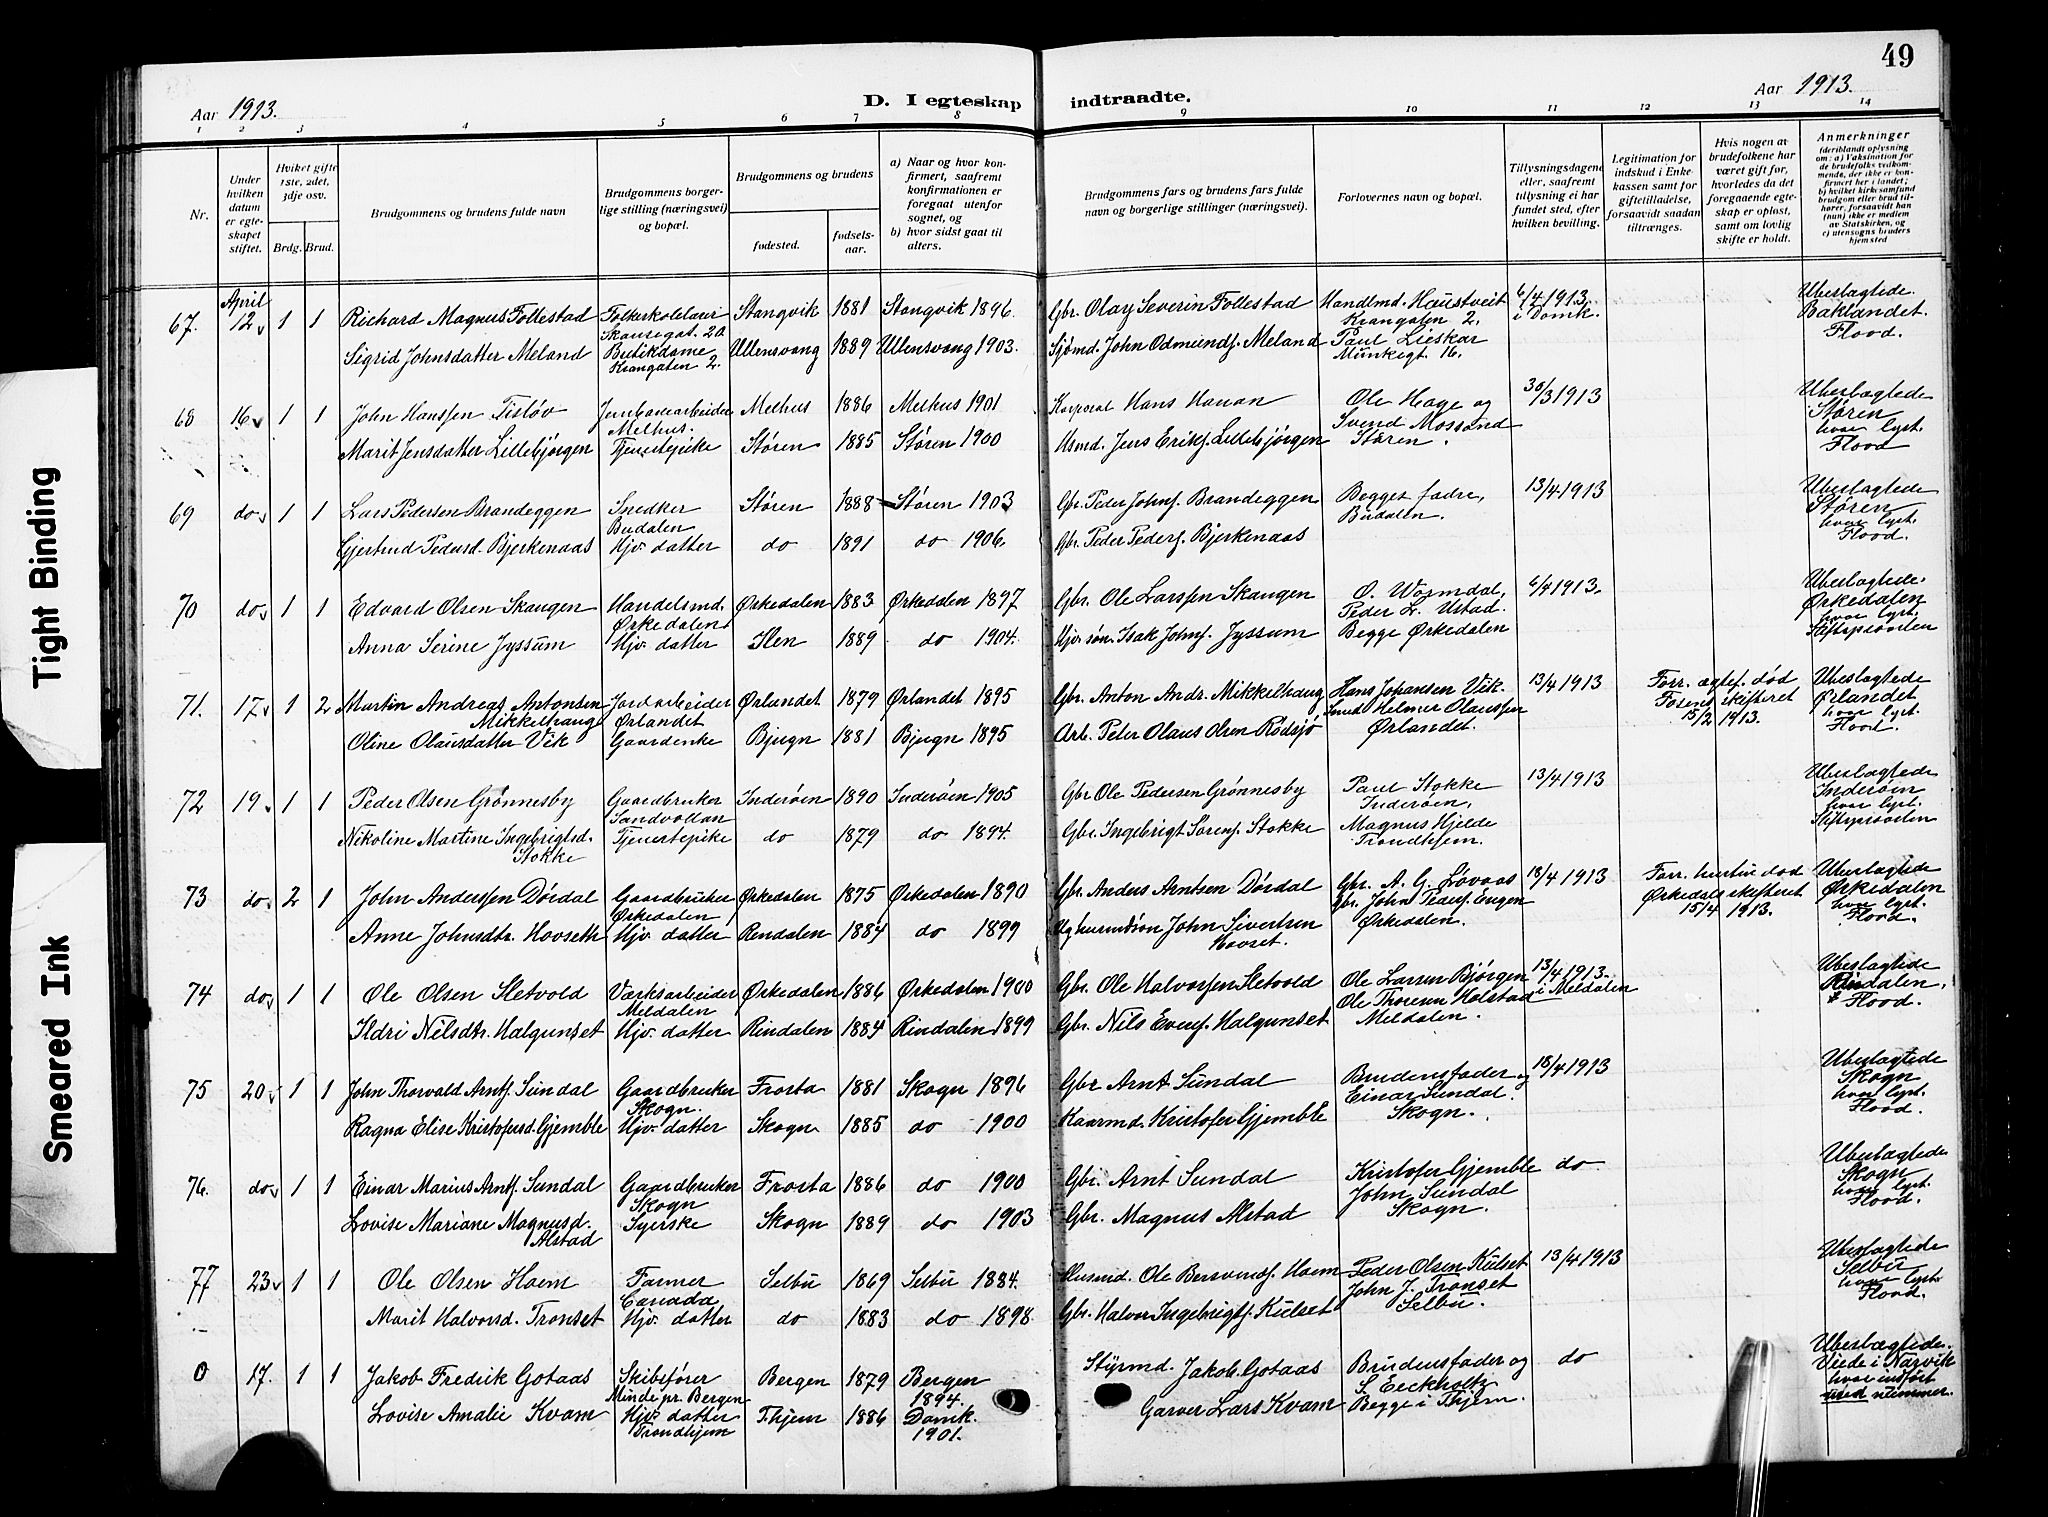 49
Aar 1913.
D. I egteskap indtraadte.
Aar 1913.
1 2 3 4 5 6 7 8 9 10 11 12 13 14
Nr.
Under hvilken datum er egteskapet stiftet.
Hviket gifte 1ste, 2det, 3dje osv.
Brdg. Brud.
Brudgommens og brudens fulde navn
Brudgommens borgerlige stilling (næringsvei) og bopæl.
Brudgommens og brudens
fødested.
fødselsaar.
a) Naar og hvor konfirmert, saafremt konfirmationen er foregaat utenfor sognet, og
b) hvor sidst gaat til alters.
Brudgommens fars og brudens fars fulde navn og borgerlige stillinger (næringsvei).
Forlovernes navn og bopæl.
Tillysningsdagene eller, saafremt tillysning ei har fundet sted, efter hvilken bevilling.
Legitimation for indskud i Enkekassen samt for giftetilladelse, forsaavidt saadan tiltrænges.
Hvis nogen av brudefolkene har været gift før, hvorledes da det foregaaende egteskap er opløst, samt om lovlig skifte er holdt.
Anmerkninger (deriblandt oplysning om: a) Vaksination for de brudefolks vedkommende, der ikke er konfirmert her i landet; b) hvilket kirkesamfund brudgom eller brud tilhører, forsaavidt han (hun) ikke er medlem av Statskirken, og c) utensogns bruders hjemsted
67. April 12 1 1 Richard Magnus Follestad Folkeskolelærer Skansegat. 20 Stangvik 1881 Stangvik 1896. Gbr. Olav Severin Follestad Handlmd. Haustveit Krangaten 2, 6/4 1913. i Domk. Ubeslægtede. Baklandet. Flood.
Sigrid Johnsdatter Meland Butikdame Krangaten 2. Ullensvang 1889 Ullensvang 1903. Sjømd. John Odmundsf. Meland Paul Lieskar Munkegt. 16.
68 16 1 1 John Hanssen Tisløv Jernbanearbeider Melhus. Melhus 1886 Melhus 1901 Korporal Hans Hanan Ole Hage og Svend Mossand Støren. 30/3 1913 Ubeslægtede Støren hvor lyst. Flood
Marit Jensdatter Lillebjørgen Tjenestepike Støren 1885 Støren 1900 Husmd. Jens Eriksf. Lillebjørgen
69 do 1 1 Lars Pedersen Brandeggen Snedker Budalen Støren 1888 Støren 1903 Gbr. Peder Johnsf. Brandeggen Begges fædre, Budalen. 13/4 1913 Ubeslægtede Støren hvor lyst. Flood.
Gjertrud Pedersd. Bjerkenaas Hjv. datter do 1891 do 1906. Gbr. Peder Pedersf. Bjerkenaas
70 do 1 1 Edvard Olsen Skaugen Handelsmd. Ørkedalen Ørkedalen 1883 Ørkedalen 1897 Gbr. Ole Larssen Skaugen O. Wormdal, Peder L. Ustad. Begge Ørkedalen 6/4 1913. Ubeslægtede. Ørkedalen hvor lyst. Stiftsprovsten
Anna Serine Jyssum Hjv. datter Ilen 1889 do 1904. Hjv. søn. Isak Johnsf. Jyssum
71. 17 1 2 Martin Andreas Antonsen Mikkelhaug Jordarbeider Ørlandet Ørlandet 1879 Ørlandet 1895 Gbr. Anton Andr. Mikkelhaug Hans Johansen Vik. Helmer Olaussen Ørlandet. 13/4 1913 Forr. ægtef. død Fosens skifteret 15/2 1913. Ubeslægtede Ørlandet hvor lyst. Flood.
Oline Olausdatter Vik Gaardenke Bjugn 1881 Bjugn 1895 Arb. Peter Olaus Olsen Rødsjø
72 19 1 1 Peder Olsen Grønnesby Gaardbruker Sandvollan Inderøen 1890 Inderøen 1905 Gbr Ole Pedersen Grønnesby Paul Stokke Inderøen, Magnus Hjelde Trondhjem. 13/4 1913 Ubeslægtede Inderøen hvor lyst. Stiftsprovsten
Nikoline Martine Ingebrigtsd. Stokke Tjenestepike do 1879 do 1894. Gbr. Ingebrigt Sørensf. Stokke
73 do 2 1 John Anderssen Dørdal Gaardbruker Ørkedalen Ørkedalen 1875 Ørkedalen 1890 Gbr. Anders Arntsen Dørdal Gbr. A. G. Løvaas Gbr. John Pedersf. Engen Ørkedalen. 18/4 1913 Forr. hustru død Ørkedals skifteret 15/4 1913. Ubeslægtede Ørkedalen hvor lyst. Flood.
Anne Johnsdtr. Hovseth Hjv. datter Rendalen 1884 do 1899 John Sivertsen Hovset.
74 do 1 1 Ole Olsen Sletvold Værksarbeider Meldalen Ørkedalen 1886 Ørkedalen 1900 Gbr. Ole Halvorssen Sletvold Ole Larsen Bjørgen Ole Thoresen Holstad Meldalen. 13/4 1913. i Meldalen Ubeslægtede Rindalen, Flood.
Ildri Nilsdtr. Halgunset Hjv. datter Rindalen 1884 Rindalen 1899 Gbr. Nils Evensf. Halgunset
75 20 1 1 John Thorvald Arntsf. Sundal Gaardbruker Skogn. Frosta 1881 Skogn 1896 Gbr Arnt Sundal Brudens fader og Einar Sundal. Skogn. 18/4 1913 Ubeslægtede Skogn hvor lyst. Flood.
Ragna Elise Kristofersd. Gjemble Hjv. datter Skogn 1885 do 1900 Kaarmd. Kristofer Gjemble
76. do 1 1 Einar Marius Arntsf. Sundal Gaardbruker Skogn Frosta 1886 do 1900 Gbr. Arnt Sundal Kristofer Gjemble John Sundal Skogn. do Ubeslægtede Skogn hvor lyst. Flood.
Lovise Mariane Magnusd. Alstad Syerske Skogn 1889 do 1903 Gbr. Magnus Alstad
77 23 1 1 Ole Olsen Hoem Farmer Canada Selbu 1869 Selbu 1884. Husmd. Ole Bersvendsf. Hoem Peder Olsen Kulset John J. Tronset Selbu. 13/4 1913 Ubeslægtede Selbu hvor lyst. Flood.
Marit Halvorsd. Tronset Hjv. datter do 1883 do 1898 Gbr. Halvor Ingebrigtsf. Kulset
0 17. 1 1 Jakob Fredrik Gotaas Skibsfører Minde pr. Bergen Bergen 1879 Bergen 1894. Styrmd. Jakob Gotaas Brudens fader og S. Eeckholtz Begge i Thjem. do Ubeslægtede. Viede i Narvik hvor indført med nummer.
Lovise Amalie Kvam Hjv. datter Trondhjem Thjem 1886 Domk. 1901. Garver Lars Kvam
Tight Binding
Smeared Ink